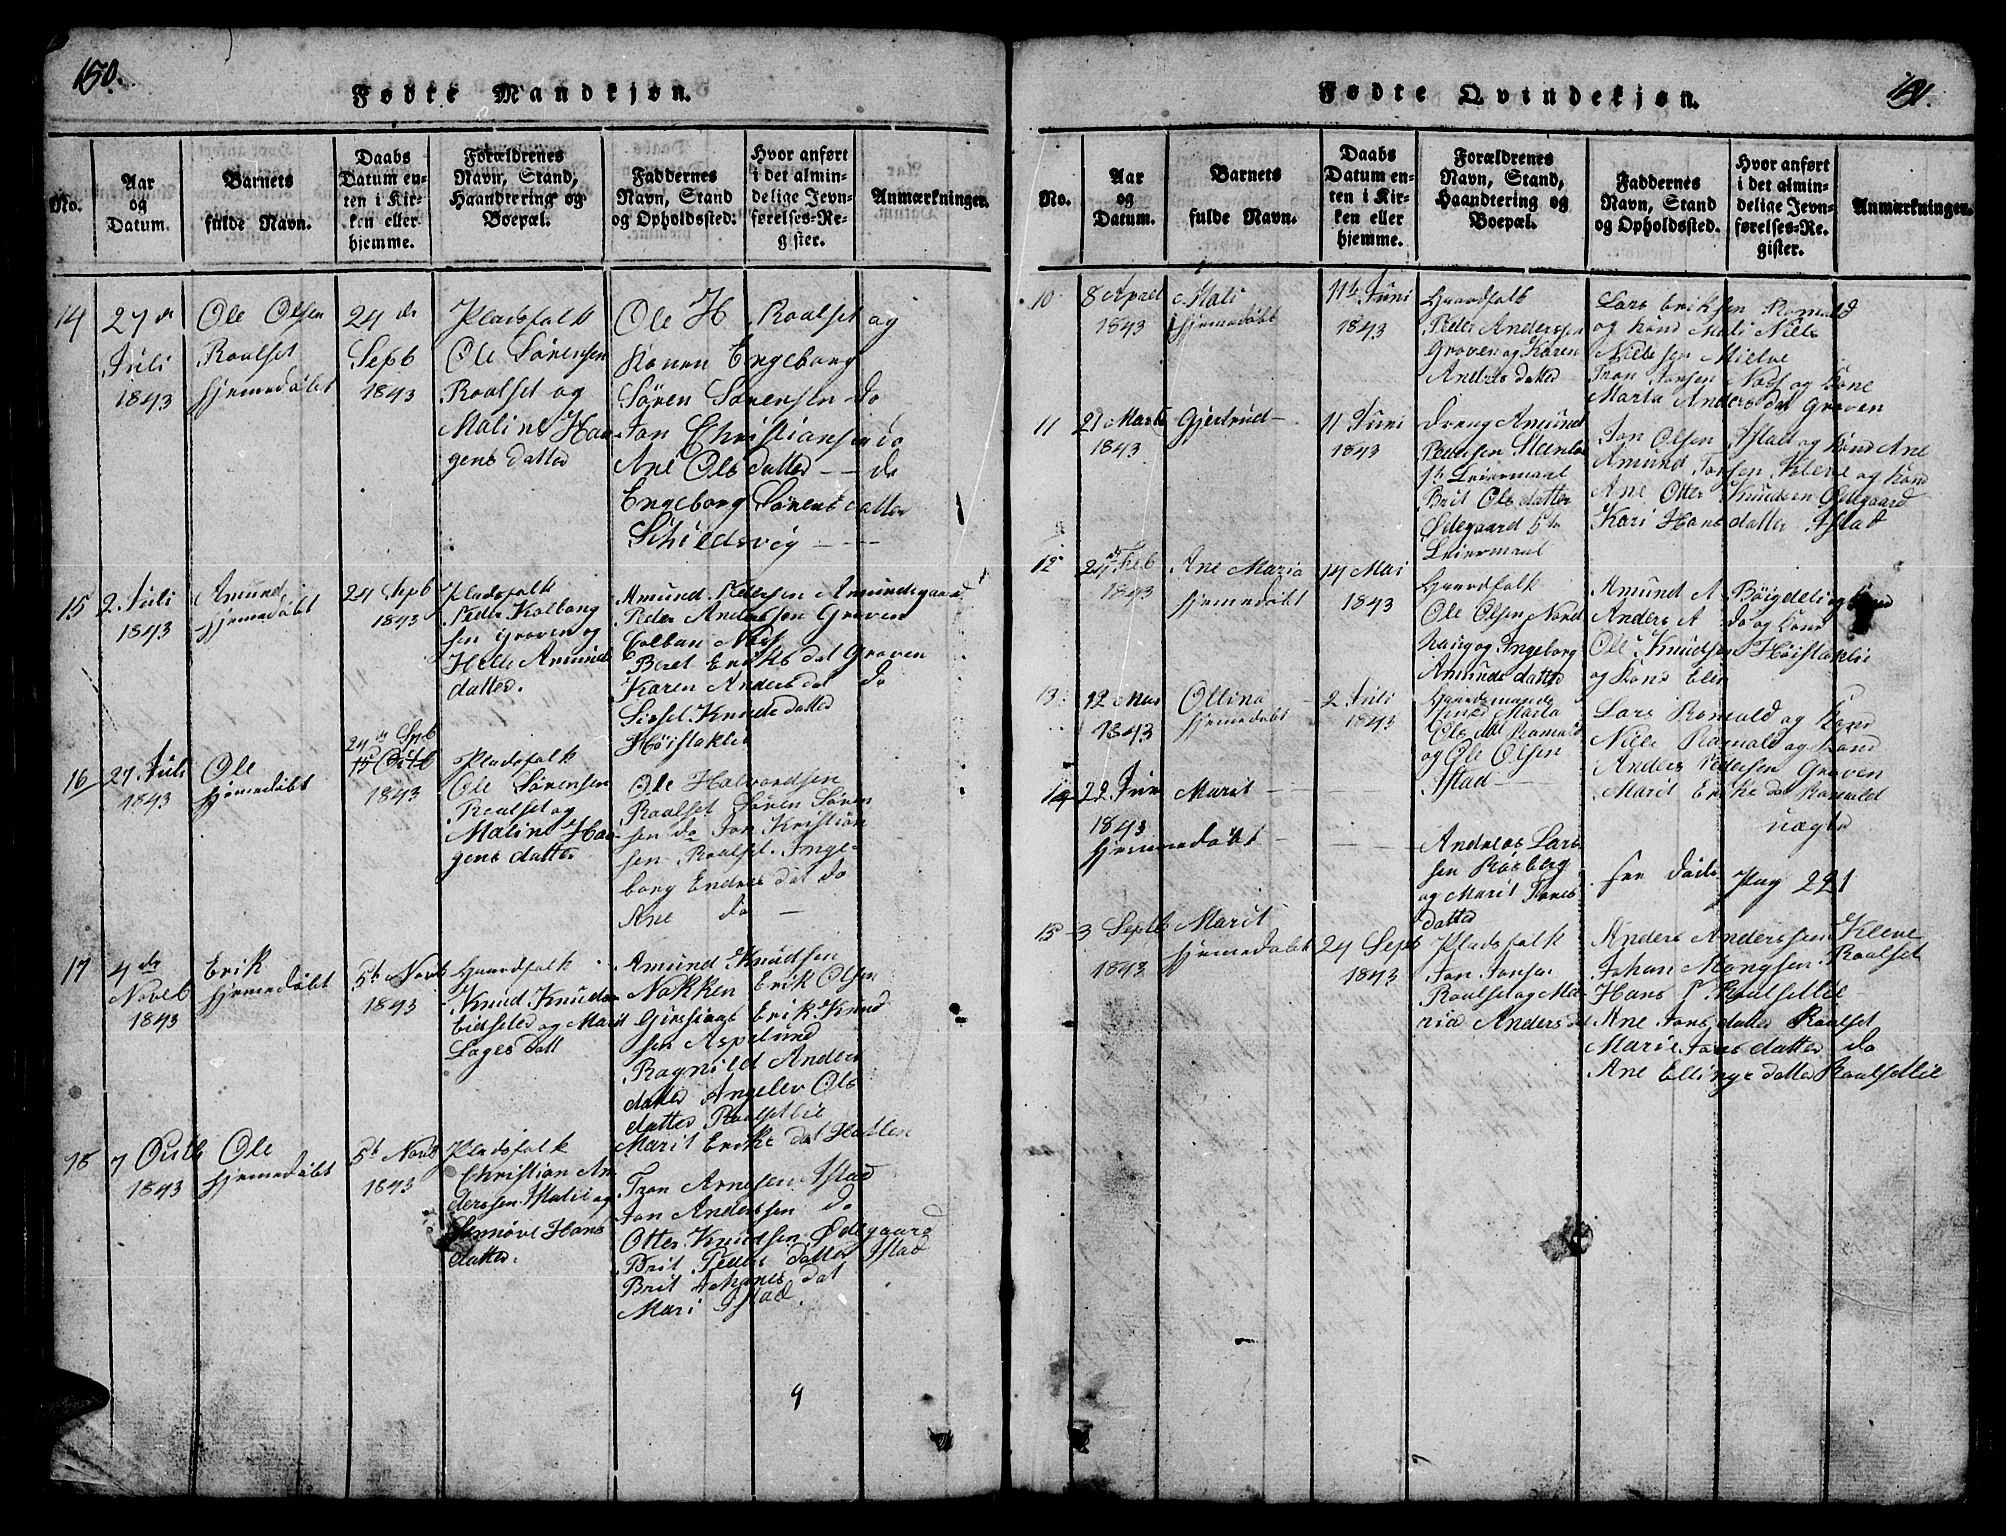 150.
Fødte Mandkjøn.
No.
Aar
og
Datum.
Barnets
fulde Navn.
Daabs
Datum en-
ten i Kir-
ken eller
hjemme.
Forældrenes
Navn, Stand,
Haandtering og
Boepæl.
Faddernes
Navn, Stand
og Opholdssted.
Hvor anført
i det almin-
delige Jevn-
førelses-Re-
gister.
Anmærkninger.
14
27 de
Juli
1843
Ole Olsen
Roalset
hjemedøbt
24 de
Sepb
1843
Pladsfolk
Ole Sørensen
Roalset og
Maline Haa-
gens datter
Ole H Roalset og
Konen Engeborg
Søren Sørensen do
Jon Christiansen do
Ane Ols datter — — do
Engeborg Sørens datter
Schildsvig — — —
15
2. Juli
1843
Amund
hjemedøbt
24 Sepb
1843
Pladsfolk
Peder Kolbang
sen Groven og
Amunds
datter.
Amund Pedersen Amundsgaard
Peder Anderssen Groven
Colban Næss
Beret Eriks dat Groven
Karen Anders dat do
Sissel Knuds datter
Høistaklie
16
27. Juli
1843
Ole
hjemedøbt
24 de Sepb
1843
Pladsfolk
Ole Sørensen
Roalset og
Maline Haa-
gens datter
Ole Halvordsen
Roalset Søren Søren
sen do Jon Kristian
sen Roalset. Inge-
borg Endres dat do
Ane do —
17
4 de
Noveb
1843
Erik
hjemedøbt
5te Novb
1843
Gaardfolk
Knud Knuds
og Marit
Lages datt
Amund Knudsen
Nakken Erik Olsen
Erik Knud
sen Aspelund
Ragnild Anders
datter Angelev Ols
datter Roalsetlie
Marit Eriks dat Hatlen
18
7 Octb
1843
Ole
hjemedøbt
5te Novb
1843
Pladsfolk
Christian An
derssen Istadlie og
Hans
datter.
Tron Arnesen Istad
Jon Anderssen do
Otter Knudsen Ødegaard
Brit Peders datter Istad
Brit Johanes dat
Mari Istad.
9
151.
Fødte Qvindekjøn.
No.
Aar
og
Datum.
Barnets
fulde Navn.
Daabs
Datum en-
ten i Kir-
ken eller
hjemme.
Forældrenes
Navn, Stand,
Haandtering og
Boepæl.
Faddernes
Navn, Stand
og Opholdssted.
Hvor anført
i det almin-
delige Jevn-
førelses-Re-
gister.
Anmærkninger.
10
8 April
1843
Mali
hjemedøbt
11te Juni
1843
Gaardfolk
Peder Anderssen
Groven og Karen
Andreas datter
Lars Eriksen Romuld
og Kond Mali Niels
Niels sen Mielve
Tron Jonsen Næss og Kone
Marta Anders dat Groven
11
21 Marts
1843
Gjertrud —
11 Juni
1843
Dreng Amund
Pedersen Steenløs
1te Leiermaal
Brit Ols datter
Ødegaard 5te
Leiermaal
Jon Olsen Istad og Kond Ane
Amund Jonsen Kleve og Kond
Ane Otter Knudsen Ødegaard
Kari Hans datter Istad
12
24 Feb
1843
Ane Maria
hjemedøbt
14 Mai
1843
Gaardfolk
Ole Olsen Nord
haug og Ingeborg
Amunds datter
Amund A Bøigdeli og Kond
Anders A do og Kond
Ole Knudsen Høistaklie
og Kond Elen
13
12 Mai
1843
Ollina
hjemedøbt
2 Juli
1843
Marta
Ols dat Romuld
og Ole Olsen
Istad —
Lars Romuld og Kond
Niels Romuld og Kond
Anders Pedersen Groven
Marit Eriks dat Romuld
uægte
14
22 Juni
1843
hjemmedøbt
Marit
Andreas Lars
sen Røsberg
og Marit Jonas
datter
see døde Pag 221
15
3 Septb
1843
Marit
hjemedøbt
24 Sepb
1843
Pladsfolk
Jon Jonsen
Roalset og Ma-
ria Anders dat
Anders Anderssen Kleve
Johan Mongsen Roalset
Hans P Roalsetlie
Ane Jons datter Roalset
Marie Jons datter do
Ane Ellings datter Roalsetlie